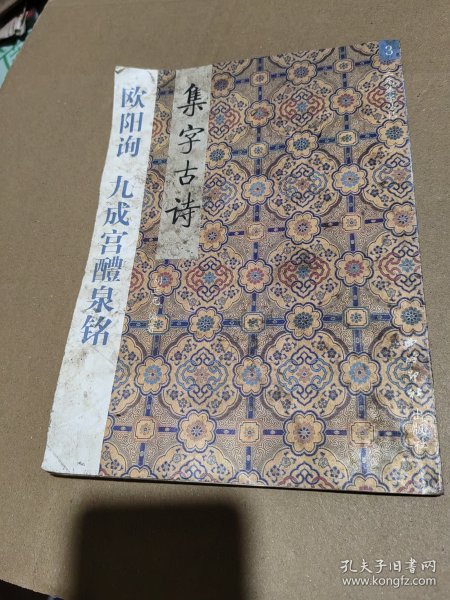 欧阳询 九成宫醴泉铭
集字古诗
3
孔夫子旧书网
www.kongfz.com